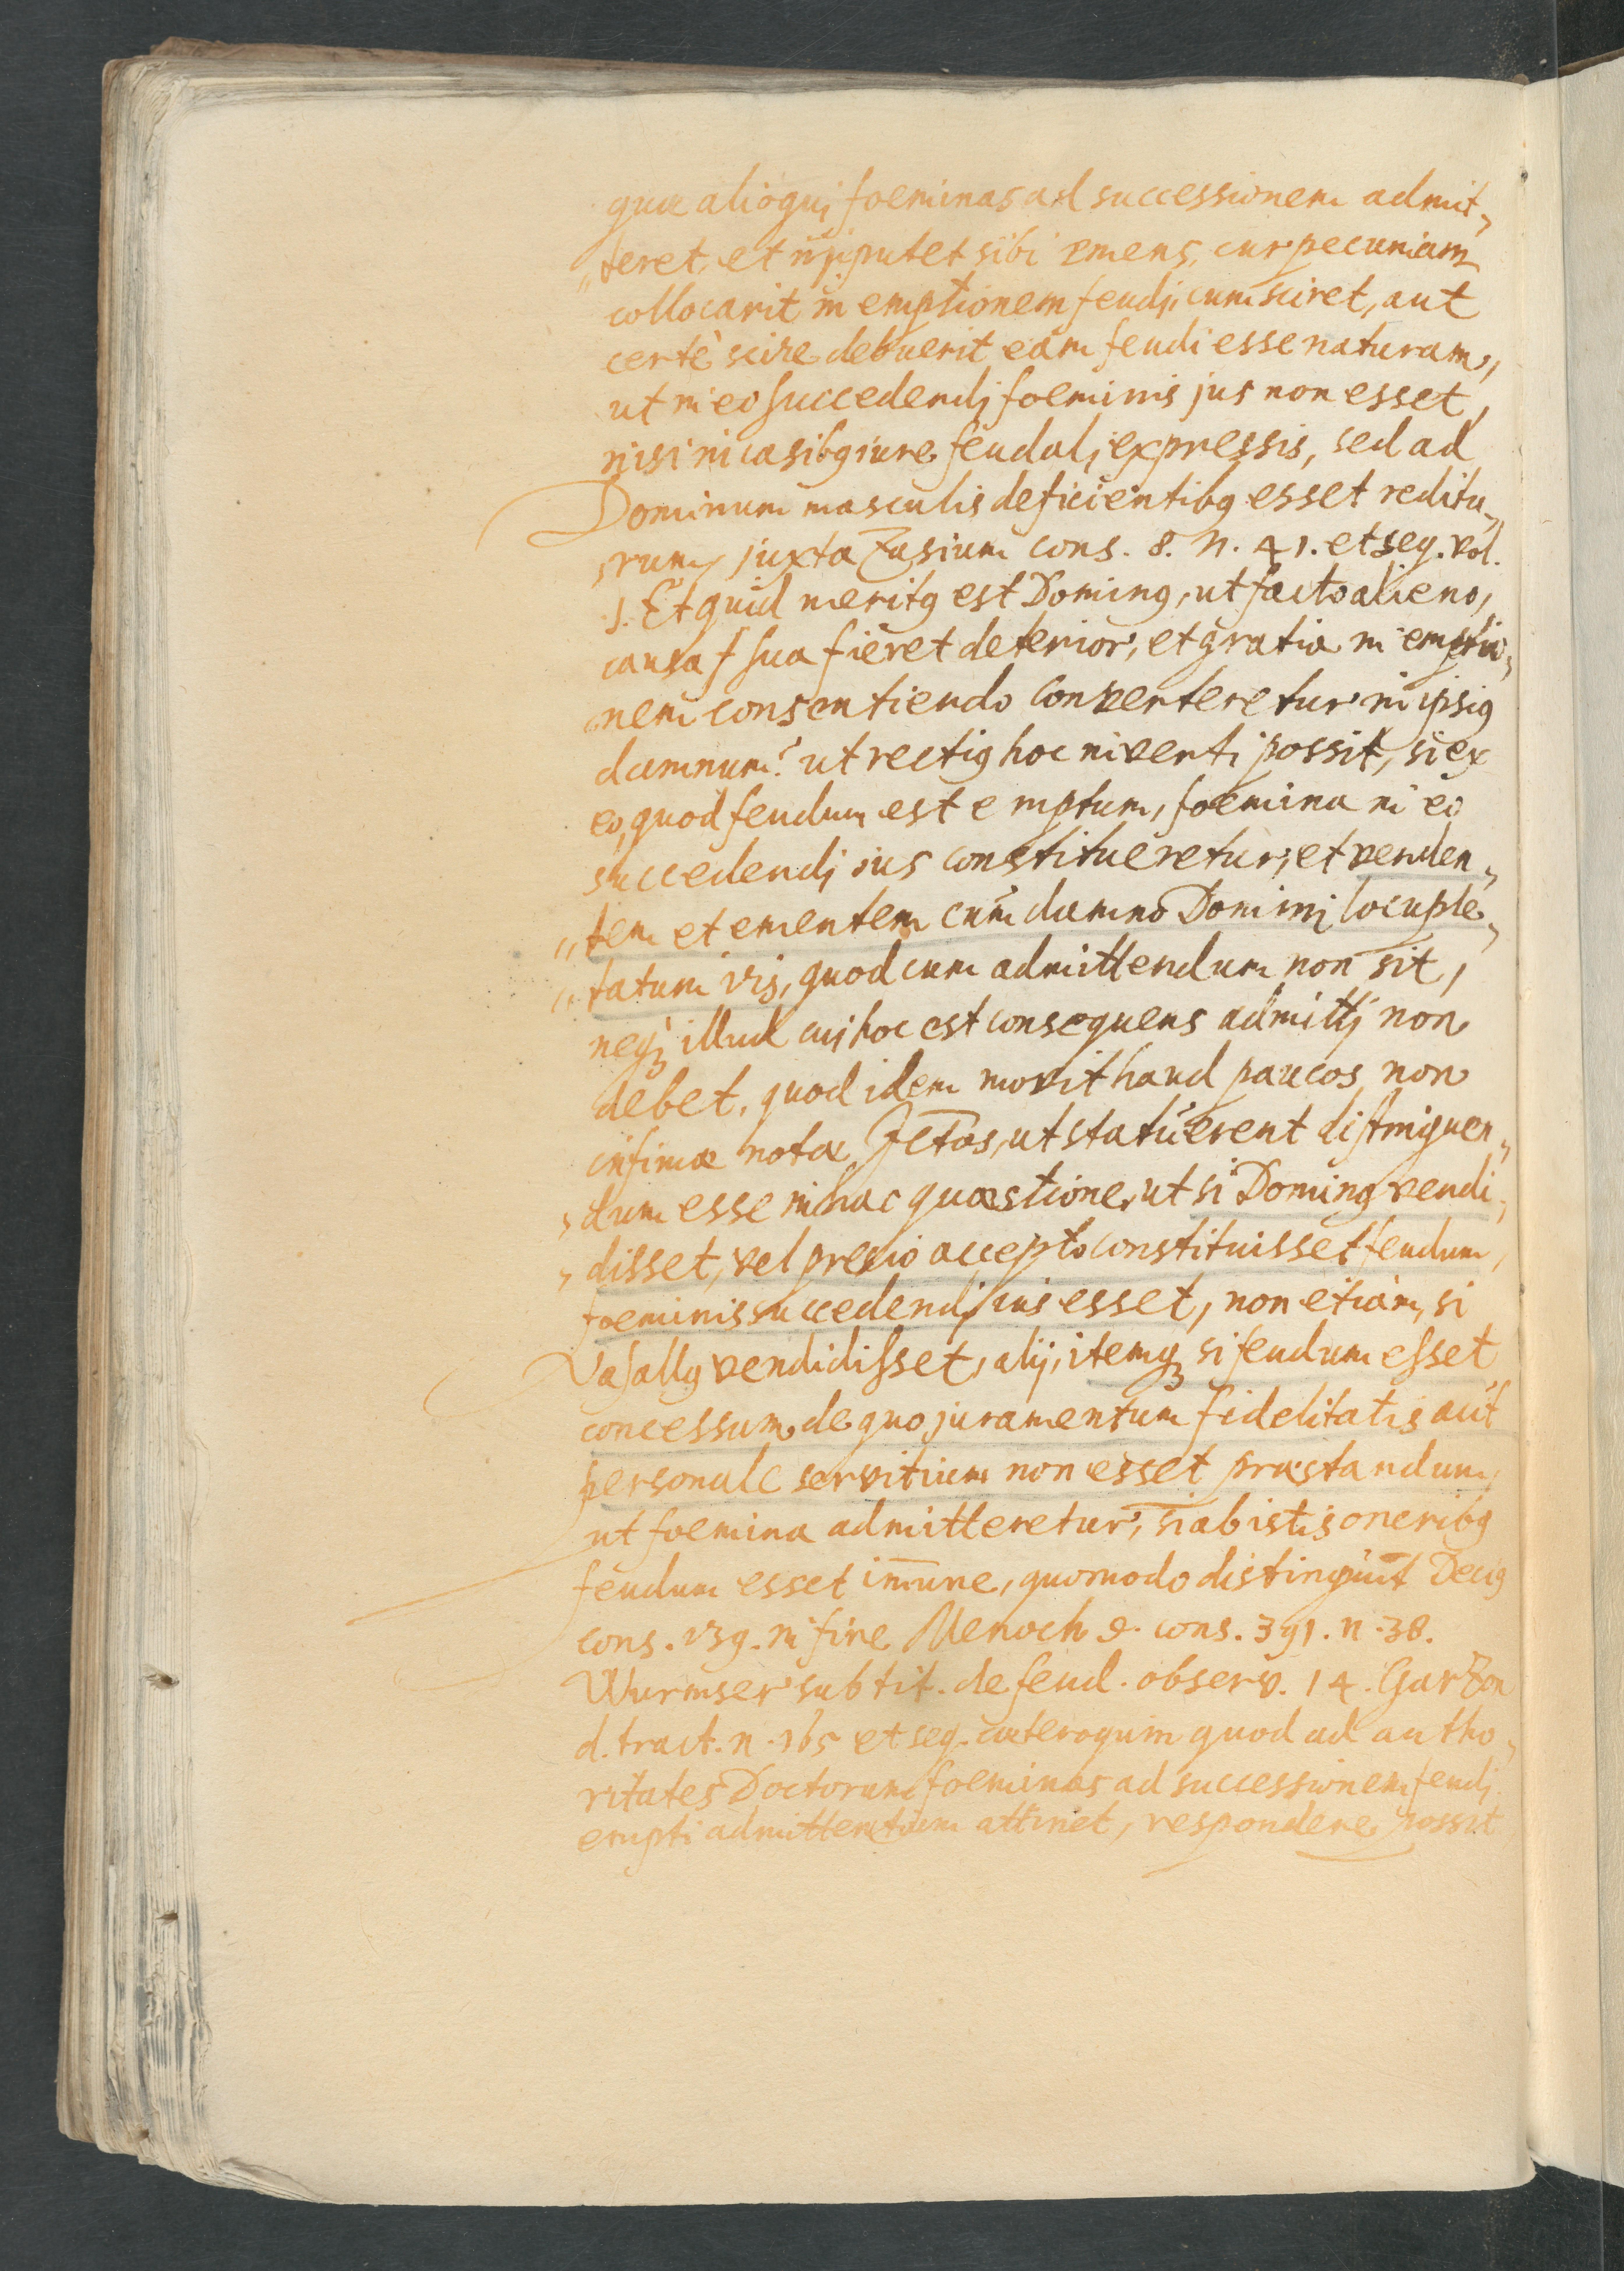 quae alioqui foeminas ad successionem admit„
„teret, et imputet sibi emens, cur pecuniam
collocarit in emptionem feudi, cum sciret, aut
certè scire debuerit eam feudi esse naturam,
ut in eo succedendi foeminis jus non esset,
nisi in casibꝰ iure feudali expressis, sed ad
Dominum masculis deficientibꝰ esset reditu„
rum, juxta Zasium cons. 8. n. 41. et seq. vol.
1. Et quid meritꝰ est Dominꝰ, ut facto alieno,
causa sua fieret deterior, et gratia in emptio„
nem consentiendo converteretur in ipsiꝰ
damnum? ut rectiꝰ hoc inverti possit, si ex
eo, quod feudum est emptum, foemina in eo
succedendi ius constitueretur, et venden„
„tem et ementem cum damno Domini locuple„
„tatum iri, quod cum admittendum non sit,
neqꝫ illud cui hoc est consequens admitti non
debet. quod idem movit haud paucos non
infimae notae JCtos, ut statuerent distinguen„
„dum esse in hac quaestione, ut si Dominꝰ vendi„
„disset, vel precio accepto constituisset feudum,
foeminis succedendi ius esset, non etiam, si
Vasallꝰ vendidisset, alij, itemqꝫ si feudum esset
concessum de quo juramentum fidelitatis aut
personale servitium non esset praestandum,
ut foemina admitteretur, si ab istis oneribꝰ
feudum esset im̄une, quomodo distingunt Deciꝰ
cons. 139. in fine Menoch d. cons. 391. n. 38.
Wurmser sub tit. de feud. observ. 14. Garzon
d. tract. n. 165 et seq. caeteroquin quod ad autho„
ritates Doctorum foeminas ad successionem feudi
empti admittentium attinet, respondere possit